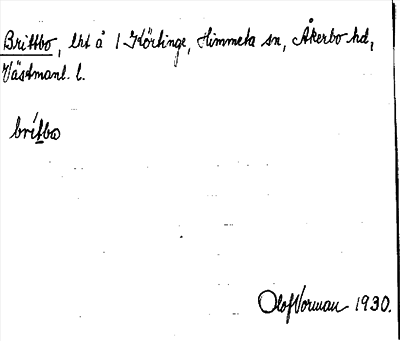 Brittbo, lht å 1 Körtinge, Himmeta sn, Åkerbo hd,
Västmanl. l.
brítbo
Olof Vorman 1930.